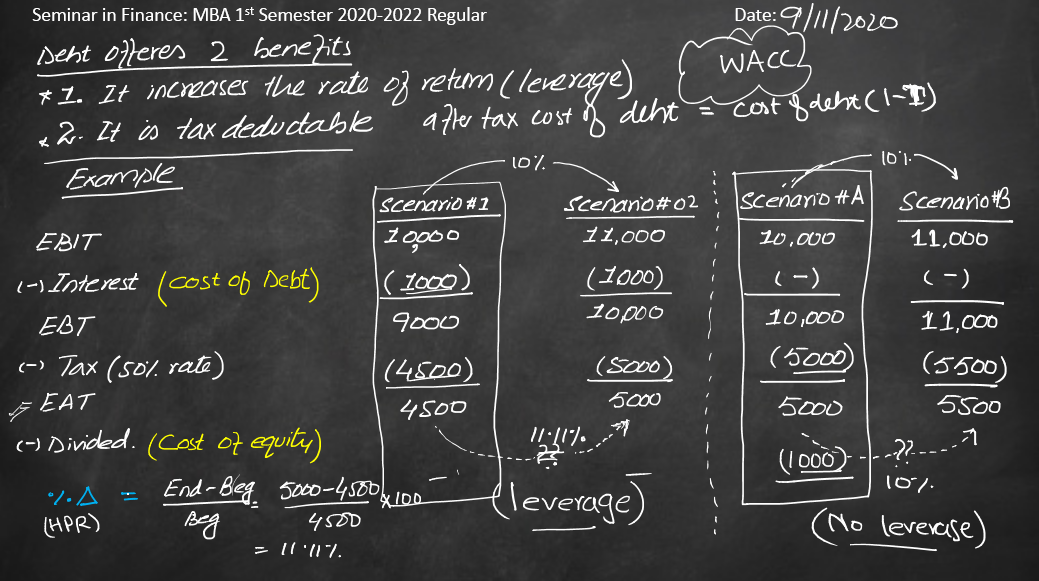 Seminar in Finance: MBA 1st Semester 2020-2022 Regular
Date: 9/11/2020
Debt offeres 2 benefits
WACC
* 1. It increases the rate of return (leverage)
* 2. It is tax deductable
after tax cost of debt = cost of debt (1-T)
Example
10%
10%
Scenario #1 Scenario #02 Scenario #A Scenario #B
EBIT 10,000 11,000 10,000 11,000
(-) Interest (cost of Debt) (1000) (1000) (-) (-)
EBT 9000 10,000 10,000 11,000
(-) Tax (50% rate) (4500) (5000) (5000) (5500)
EAT 4500 5000 5000 5500
(-) Divided. (Cost of equity) - - (1000)
11.11%
??
??
10%
%Δ = End-Beg / Beg = 5000-4500 / 4500 x100
(HPR)
= 11.11%
(leverage)
(No leverase)